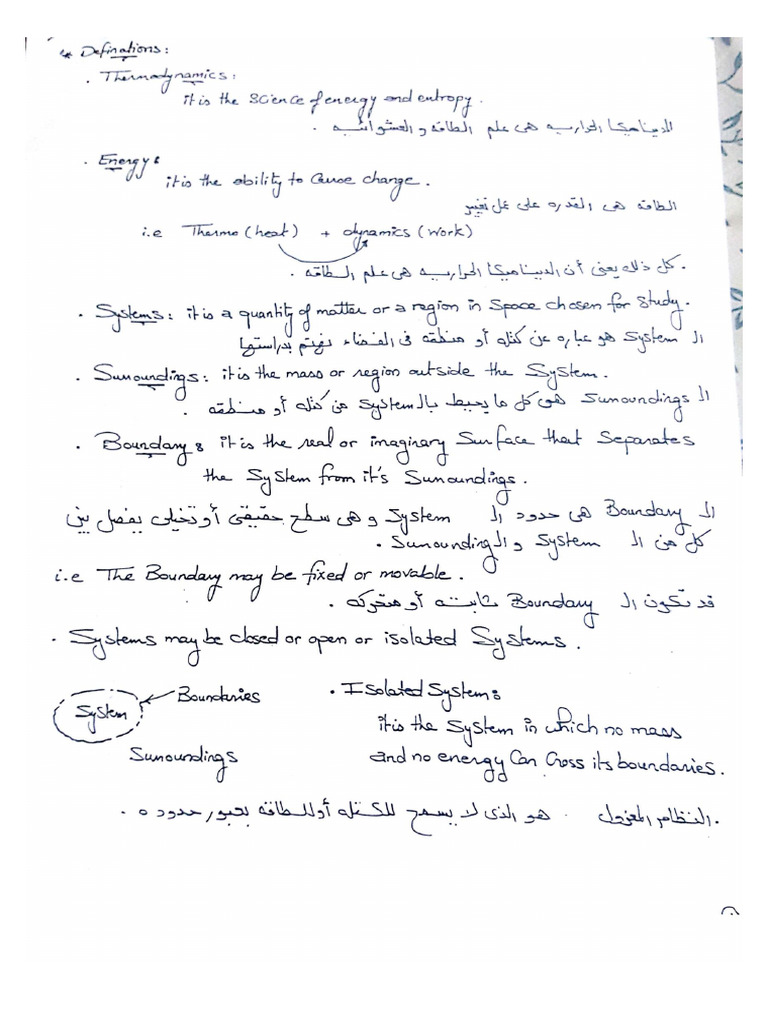 * Definations:
. Thermodynamics:
it is the Science of energy and entropy.
الديناميكا الحراريه هى علم الطاقه و العشوائيه .
. Energy:
it is the ability to Cause change.
الطاقه هى القدره على عمل تغيير
i.e Thermo (heat) + dynamics (work)
كل ذلك يعنى أن الديناميكا الحراريه هى علم الطاقه .
. Systems: it is a quantity of matter or a region in Space chosen for Study.
ال System هو عباره عن كتله أو منطقه فى الفضاء نهتم بدراستها
. Surroundings: it is the mass or region outside the System.
ال Surroundings هى كل ما يحيط بالـ System من كتله أو منطقه .
. Boundary: it is the real or imaginary Surface that Separates
the System from it's Surroundings.
ال Boundary هى حدود ال System و هى سطح حقيقى أو تخيلى يفصل بين
كل من ال System و ال Surrounding .
i.e The Boundary may be fixed or movable.
قد تكون ال Boundary ثابته أو متحركه .
. Systems may be closed or open or isolated Systems.
Boundaries
System
Surroundings
. Isolated System:
it is the System in which no mass
and no energy Can Cross its boundaries.
. النظام المعزول . هو الذى لا يسمح للكتله أو للطاقه بعبور حدوده .